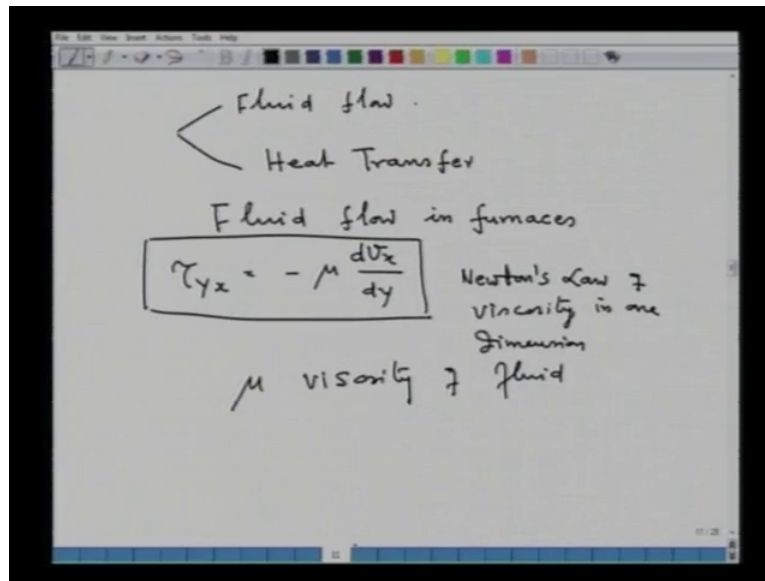 File Edit View Insert Actions Tools Help
Fluid flow.
Heat Transfer
Fluid flow in furnaces
τyx = - μ dVx/dy
Newton's Law of
viscosity in one
Dimension
μ visosity of fluid
11